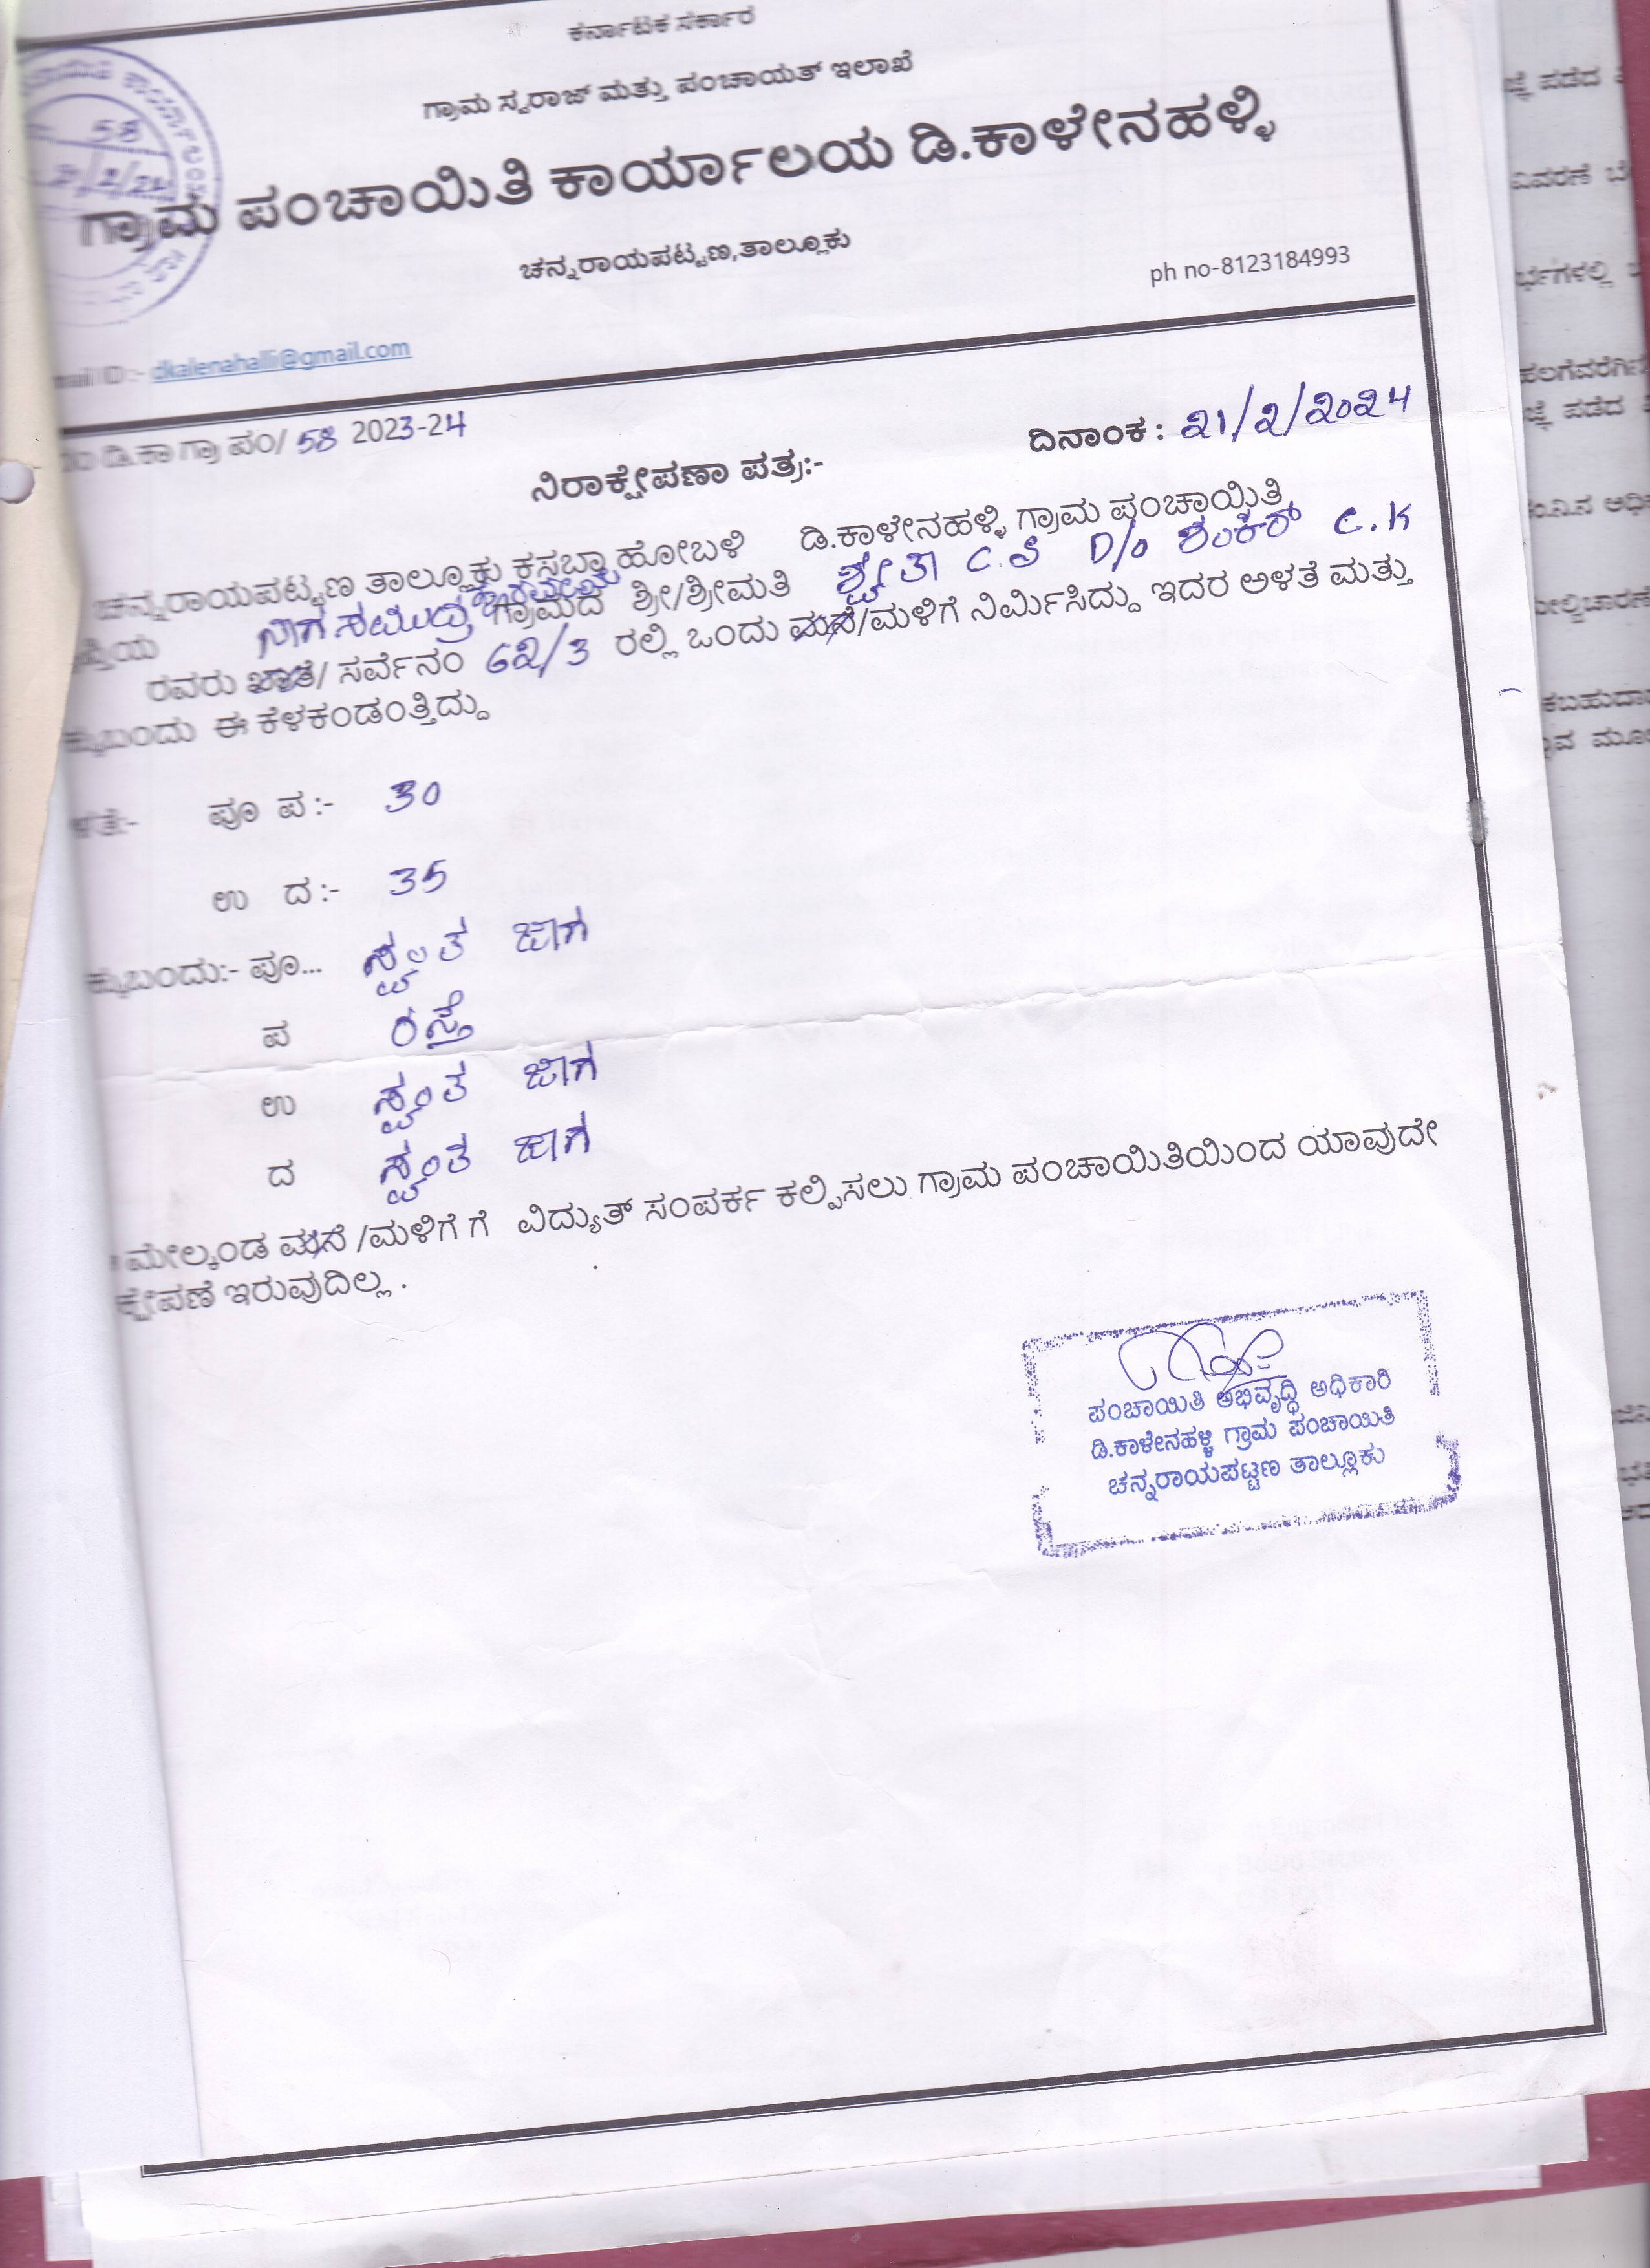 ಕರ್ನಾಟಕ ಸರ್ಕಾರ
ಗ್ರಾಮ ಸ್ವರಾಜ್ ಮತ್ತು ಪಂಚಾಯತ್ ಇಲಾಖೆ
ಗ್ರಾಮ ಪಂಚಾಯಿತಿ ಕಾರ್ಯಾಲಯ ಡಿ.ಕಾಳೇನಹಳ್ಳಿ
58
ಚನ್ನರಾಯಪಟ್ಟಣ,ತಾಲ್ಲೂಕು
ph no-8123184993
mail ID:- dkalenahalli@gmail.com
ಡಿ.ಕಾ ಗ್ರಾ ಪಂ/ 58 2023-24
ದಿನಾಂಕ : 21/2/2024
ನಿರಾಕ್ಷೇಪಣಾ ಪತ್ರ:-
ಚನ್ನರಾಯಪಟ್ಟಣ ತಾಲ್ಲೂಕು ಕಸಬಾ ಹೋಬಳಿ ಡಿ.ಕಾಳೇನಹಳ್ಳಿ ಗ್ರಾಮ ಪಂಚಾಯ್ತಿತಿ
ನಾಗಸಮುದ್ರ ಗ್ರಾಮದ ಶ್ರೀ/ಶ್ರೀಮತಿ ಶ್ವೇತಾ C.S D/o ಶಂಕರ್ C.K
ರವರು ಖಾತೆ/ ಸರ್ವೆನಂ 62/3 ರಲ್ಲಿ ಒಂದು ಮನೆ/ಮಳಿಗೆ ನಿರ್ಮಿಸಿದ್ದು ಇದರ ಅಳತೆ ಮತ್ತು
ಕ್ಕುಬಂದು ಈ ಕೆಳಕಂಡಂತ್ತಿದ್ದು
ಳತೆ:- ಪೂ ಪ :- 30
ಉ ದ :- 35
ಕ್ಕುಬಂದು:- ಪೂ... ಸ್ವಂತ ಜಾಗ
ಪ ರಸ್ತೆ
ಉ ಸ್ವಂತ ಜಾಗ
ದ ಸ್ವಂತ ಜಾಗ
ಮೇಲ್ಕಂಡ ಮನೆ /ಮಳಿಗೆ ಗೆ ವಿದ್ಯುತ್ ಸಂಪರ್ಕ ಕಲ್ಪಿಸಲು ಗ್ರಾಮ ಪಂಚಾಯಿತಿಯಿಂದ ಯಾವುದೇ
ಕ್ಷೇಪಣೆ ಇರುವುದಿಲ್ಲ .
ಪಂಚಾಯಿತಿ ಅಭಿವೃದ್ಧಿ ಅಧಿಕಾರಿ
ಡಿ.ಕಾಳೇನಹಳ್ಳಿ ಗ್ರಾಮ ಪಂಚಾಯಿತಿ
ಚನ್ನರಾಯಪಟ್ಟಣ ತಾಲ್ಲೂಕು